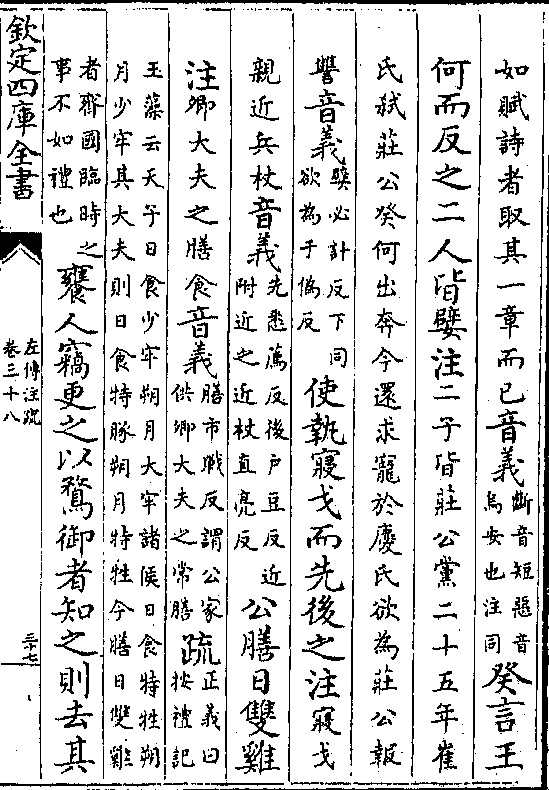 如賦詩者取其一章而已音義斷音短惡音烏安也注同癸言王
何而反之二人皆嬖注二子皆莊公黨二十五年崔
氏弑莊公癸何出奔今還求寵於慶氏欲為莊公報
讐音義嬖必計反下同欲為于偽反使執寢戈而先後之注寢戈
親近兵杖音義先悉薦反後户豆反近附近之近杖直亮反公膳日雙雞
注卿大夫之膳食音義膳市戰反謂公家供卿大夫之常膳疏正義曰按禮記
玉藻云天子日食少牢朔月大牢諸侯日食特牲朔
月少牢其大夫則日食特豚朔月特牲今膳日雙雞
者齊國臨時之事不如禮也饔人竊更之以鶩御者知之則去其
欽定四庫全書
左傳注疏
卷三十八
三十七